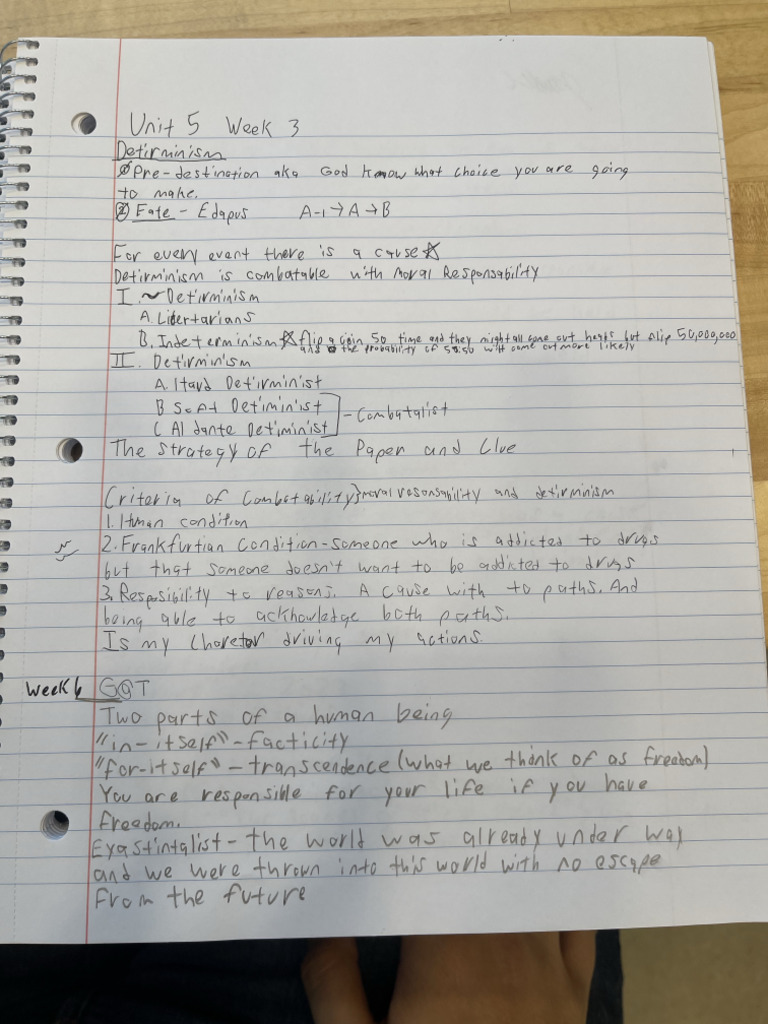 Unit 5 Week 3
Detirminism
① Pre-destination aka God know what choice you are going
to make.
② Fate - Edapus A-1 → A → B
For every event there is a cause ☆
Detirminism is combatable with Moral Responsability
I. ~Detirminism
A. Libertarians
B. Indeterminism ☆ flip a coin 50 time and they might all come out heads but flip 50,000,000
and the probability of 50:50 will come out more likely
II. Detirminism
A. Hard Detirminist
B Soft Detiminist
C Al dante Detiminist - Combatalist
The strategy of the Paper and Clue
Criteria of Combatability } moral resonsability and detirminism
1. Human condition
2. Frankfurtian Condition - Someone who is addicted to drugs
but that someone doesn't want to be addicted to drugs
3. Resposibility to reasons. A cause with to paths. And
being able to ackhowledge both paths.
Is my Charetor driving my actions.
Week 6 GGT
Two parts of a human being
"in-itself" - facticity
"for-itself" - transcendence (what we think of as freedom)
You are responsible for your life if you have
freedom.
Exastintalist - the world was already under way
and we were thrown into this world with no escape
from the future